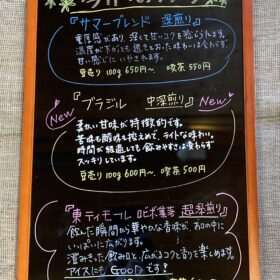 『サマーブレンド 深煎り』
重厚感があり、深くて甘いコクを感じられます。
温度が下がっても透きとおった味わいは変わらず
甘い感じにいやされます。
豆売り 100g 650円〜 喫茶 550円
『ブラジル 中深煎り』
New New
柔かい甘味が特徴的です。
苦味も酸味も控えめで、ライトな味わい。
時間が経過しても飲みやすさは変わらず
スッキリしています。
豆売り 100g 600円〜 喫茶 500円
『東ティモール 超深煎り』
飲んだ瞬間から華やかな香味が、お口の中に
いっぱいに広がります。
澄みきった飲み口と広がるコクと香りを楽しめます。
アイスにもGOODです！